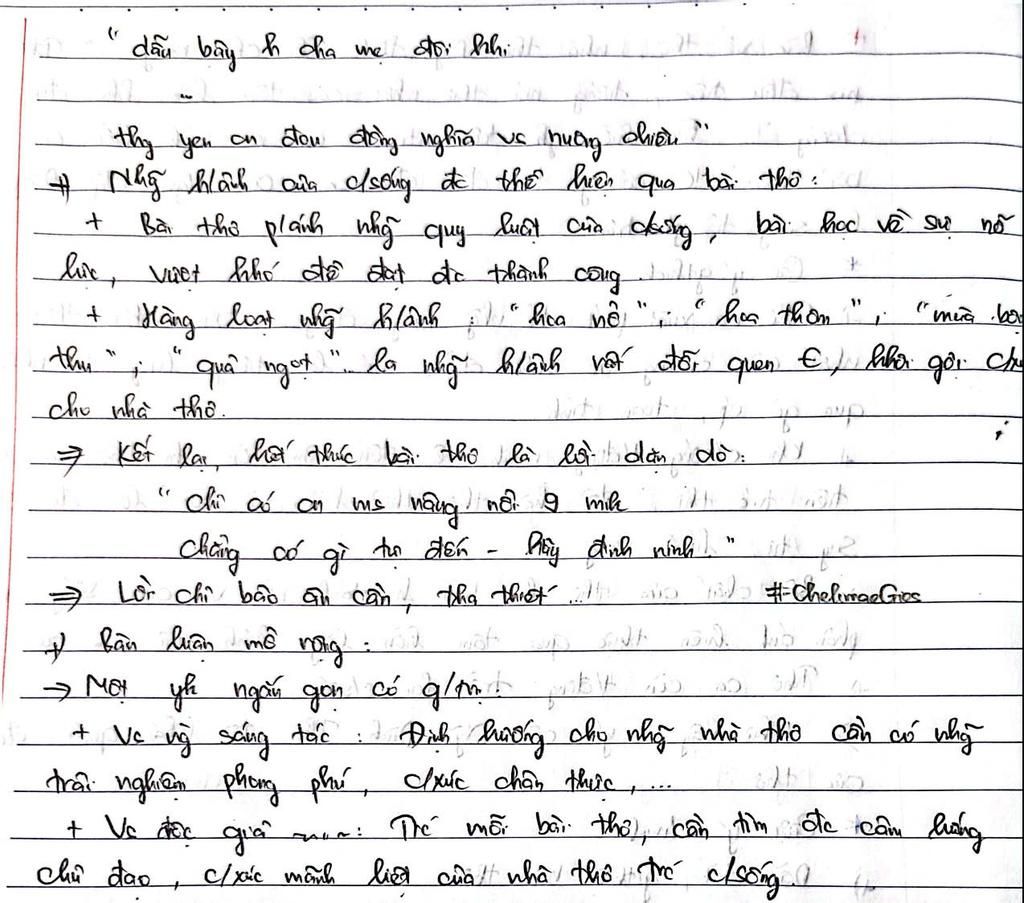 “ dẫu bây h cha mẹ đôi khi.
...
thg yêu con đou đồng nghĩa vs nuông chiều”
+) Nhg̃ h/ảnh của c/sống đc thể hiện qua bài thơ:
+ Bài thơ p/ánh nhg̃ quy luật của c/sống, bài học về sự nỗ
lực, vượt khó để đạt đc thành công.
+ Hàng loạt nhg̃ h/ảnh : “hoa nở”; “hoa thơm”; “mùa bội
thu”; “quả ngọt”... là nhg̃ h/ảnh rất đỗi quen €, khơi gợi c/xú
cho nhà thơ.
=> Kết lại, kết thúc bài thơ là lời dặn dò:
“ Chỉ có con ms nâng nổi 9 mik
Chẳng có gì tự đến - hãy đinh ninh ”
=> Lời chỉ bảo ân cần, tha thiết... #-ChelimaeGios
+) Bàn luận mở rộng :
→ Một yk ngắn gọn có g/trị:
+ Vs ng̀ sáng tác : Định hướng cho nhg̃ nhà thơ cần có nhg̃
trải nghiệm phong phú, c/xúc chân thực, ...
+ Vs độc giả : Trc mỗi bài thơ, cần tìm đc cảm hứng
chủ đạo, c/xúc mãnh liệt của nhà thơ trc c/sống.